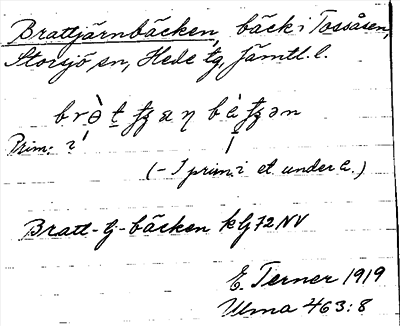 Brattjärnbäcken, bäck i Tossåsen,
Storsjö sn, Hede tg, Jämtl. l.
Prim. i
(– I prim. i et. under a.)
Bratt-tj-bäcken kbl 72 NV
E. Terner 1919
Ulma 463:8